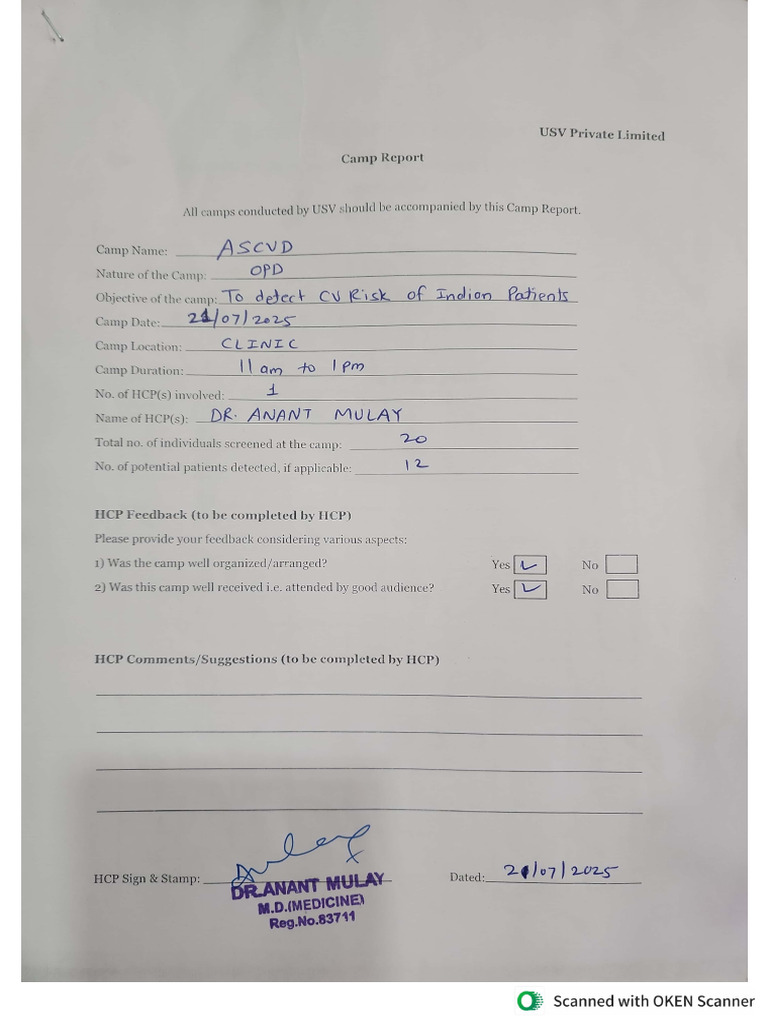 USV Private Limited
Camp Report
All camps conducted by USV should be accompanied by this Camp Report.
Camp Name: ASCVD
Nature of the Camp: OPD
Objective of the camp: To detect CV Risk of Indian Patients
Camp Date: 21/07/2025
Camp Location: CLINIC
Camp Duration: 11 am to 1 pm
No. of HCP(s) involved: 1
Name of HCP(s): DR. ANANT MULAY
Total no. of individuals screened at the camp: 20
No. of potential patients detected, if applicable: 12
HCP Feedback (to be completed by HCP)
Please provide your feedback considering various aspects:
1) Was the camp well organized/arranged? Yes No
2) Was this camp well received i.e. attended by good audience? Yes No
HCP Comments/Suggestions (to be completed by HCP)
HCP Sign & Stamp: Mulay Dated: 21/07/2025
DR.ANANT MULAY
M.D.(MEDICINE)
Reg.No.83711
Scanned with OKEN Scanner